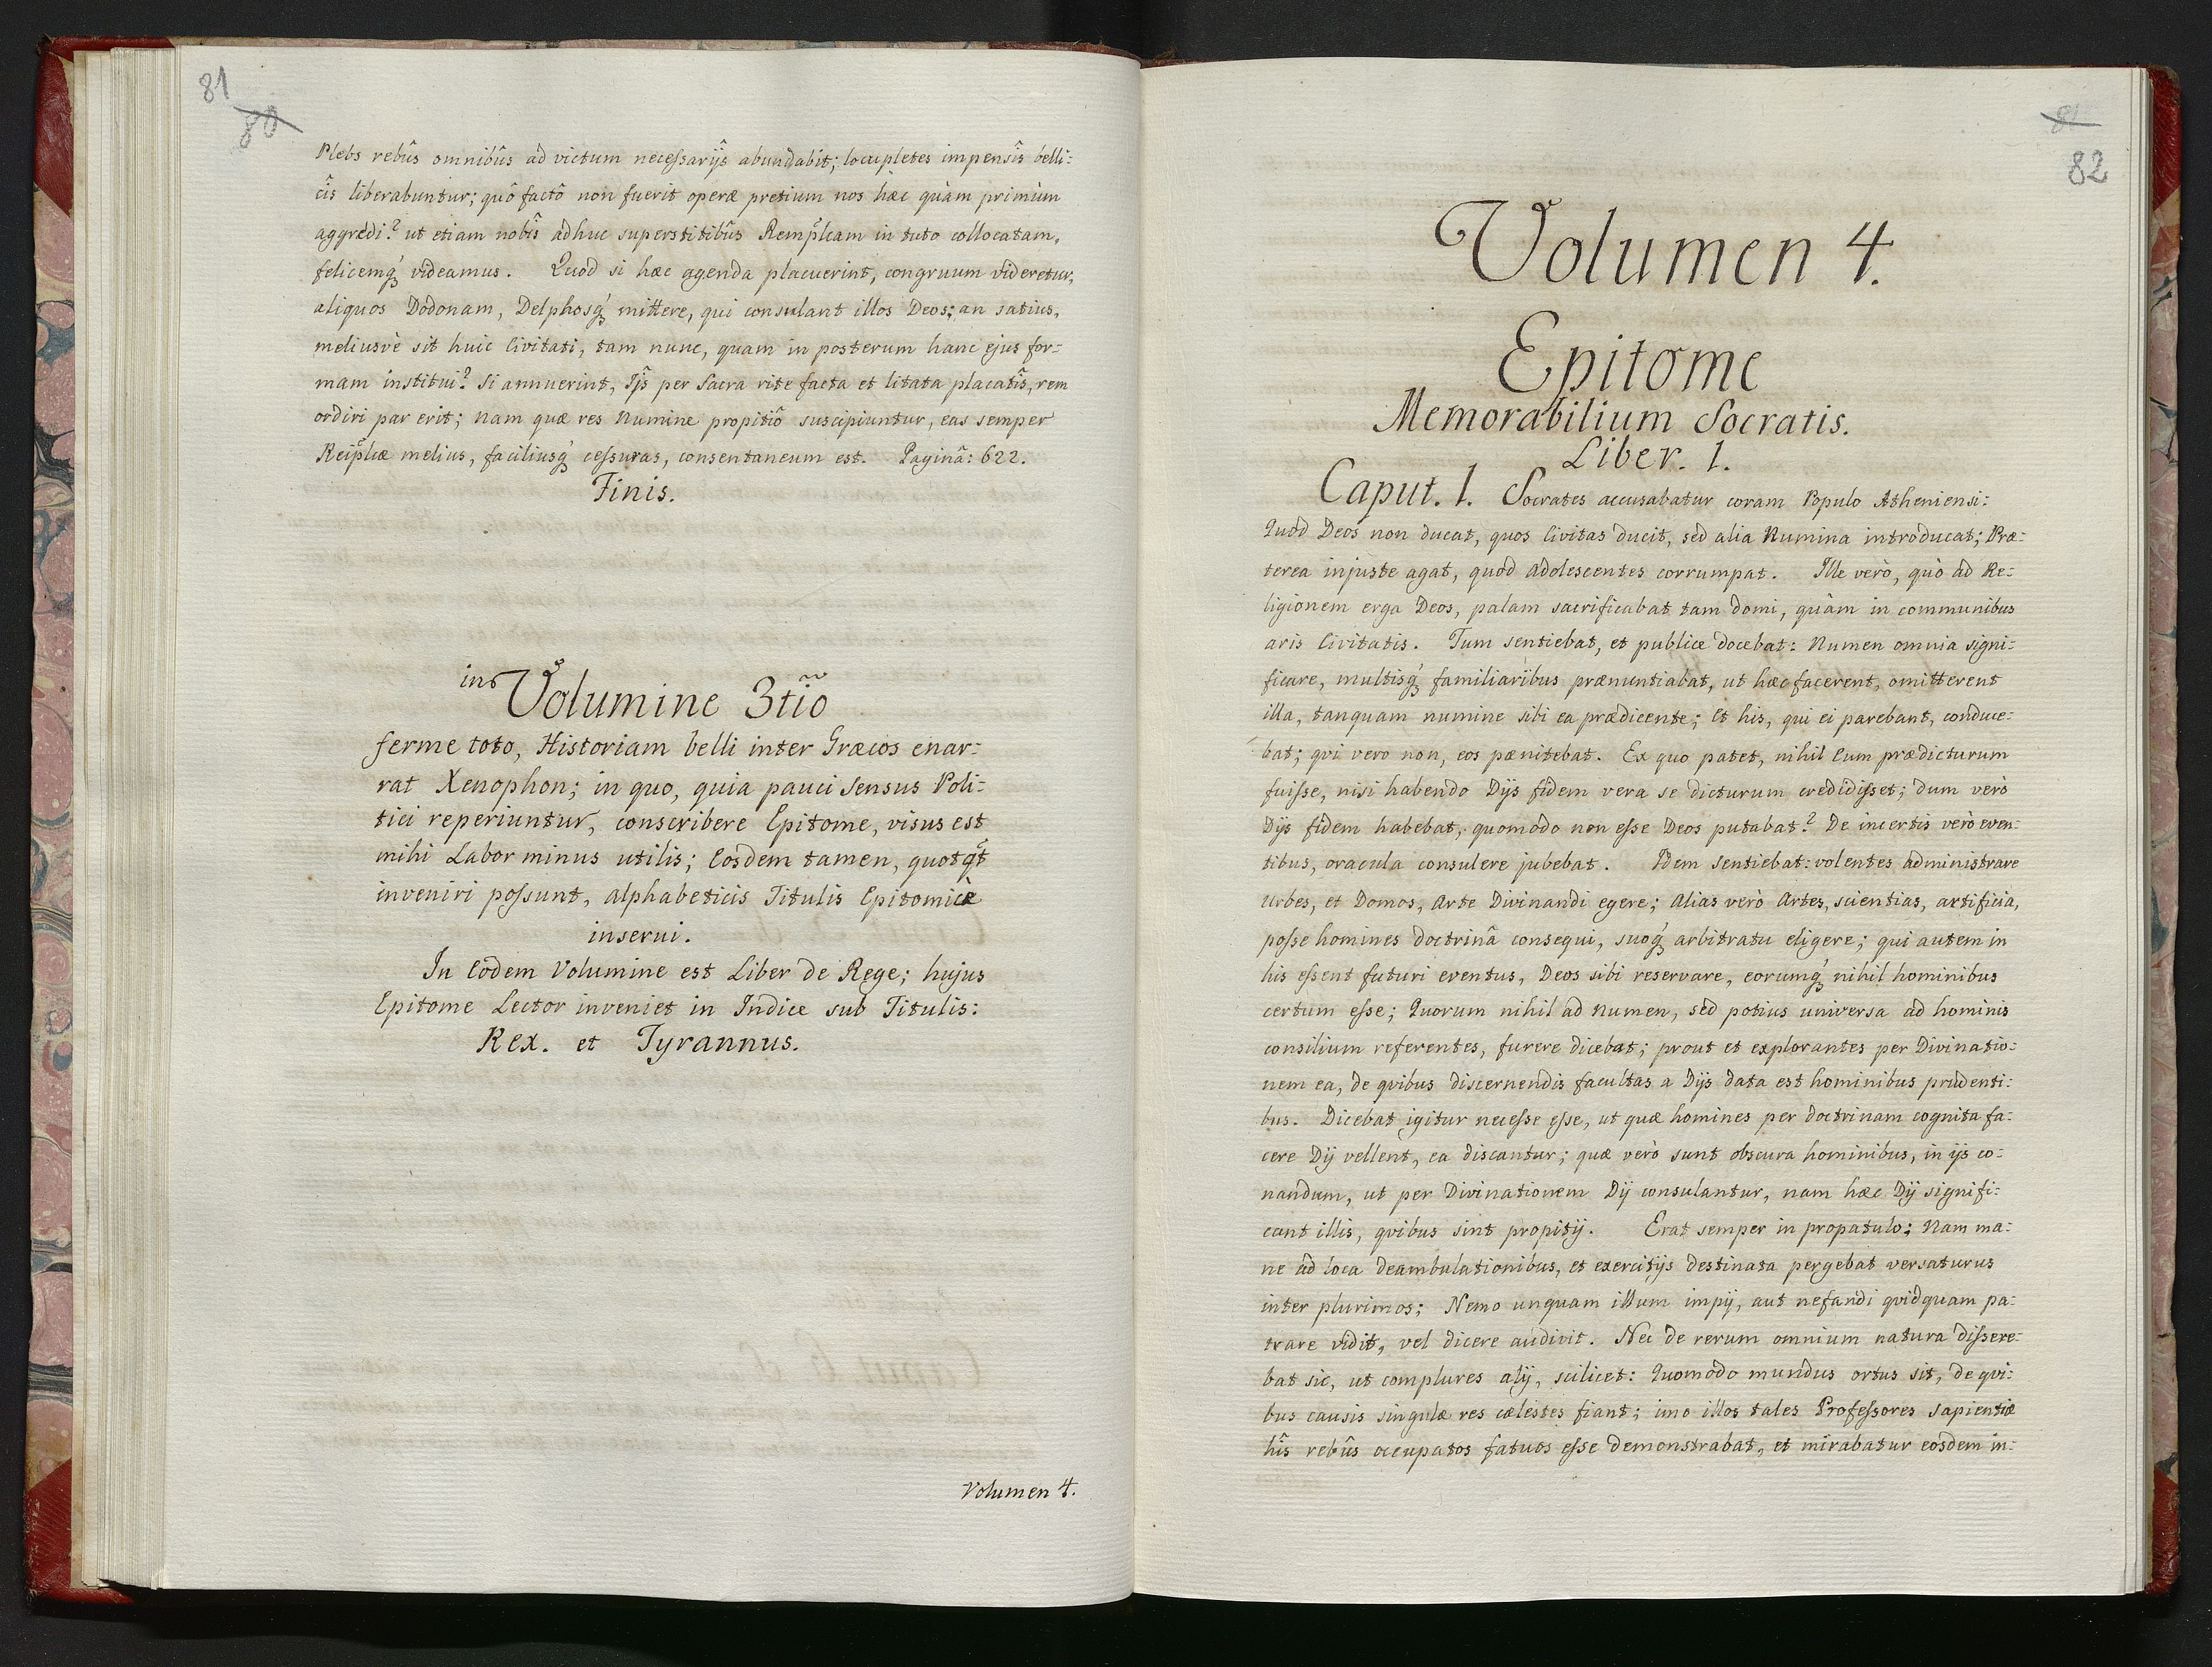 81
80
Plebs rebûs omnibûs ad victum necessarijs abundabit; locupletes impensîs belli:
cîs liberabuntur; quô factô non fuerit operæ pretium nos hæc quàm primùm
aggredi? ut etiam nobîs adhuc superstitibûs Rempl̃cam in tuto collocatam,
felicemq́ videamus. Quod si hæc agenda placuerint, congruum videretur,
aliquos Dodonam, Delphosq́ mittere, qui consulant illos Deos; an satius,
meliusvè sit huic Civitati, tam nunc, quam in posterum hanc ejus for:
mam institui? Si annuerint, Ijs per Sacra rite facta et litata placatîs, rem
ordiri par erit; nam quæ res Numine propitiô suscipiuntur, eas semper
Reipl̃cæ melius, faciliusq́ cessuras, consentaneum est. Paginâ: 622.
Finis.
in Volumine 3tio
ferme toto, Historiam belli inter Græcos enar:
rat Xenophon; in quo, quia pauci sensus Poli:
tici reperiuntur, conscribere Epitome, visus est
mihi Labor minus utilis; Eosdem tamen, quotqt̃
inveniri possunt, alphabeticis Titulis Epitomicè
inserui.
In Eodem Volumine est Liber de Rege; hujus
Epitome Lector inveniet in Indice sub Titulis:
Rex. et Tyrannus.
Volumen 4.
81
82
Volumen 4.
Epitome
Memorabilium Socratis.
Liber. 1.
Caput. 1. Socrates accusabatur coram Populo Atheniensi:
Quod Deos non ducat, quos Civitas ducit, sed alia Numina introducat; Præ:
terea injuste agat, quod adolescentes corrumpat. Ille verò, quò ad Re:
ligionem erga Deos, palam sacrificabat tam domi, quàm in communibus
aris Civitatis. Tum sentiebat, et publice docebat: Numen omnia signi:
ficare, multisq́ familiaribus prænuntiabat, ut hæc facerent, omitterent
illa, tanquam numine sibi ea prædicente; Et his, qui ei parebant, conduce:
bat; qvi vero non, eos pænitebat. Ex quo patet, nihil Eum prædicturum
fuisse, nisi habendo Dijs fidem vera se dicturum credidisset; dum verò
Dijs fidem habebat, quomodo non esse Deos putabat? De incertis verò even:
tibus, oracula consulere jubebat. Idem sentiebat: volentes administrare
Urbes, et Domos, Arte Divinandi egere; Alias verò Artes, scientias, artificia,
posse homines doctrinâ consequi, suoq́ arbitratu eligere; qui autem in
his essent futuri eventus, Deos sibi reservare, eorumq́ nihil hominibus
certum esse; Quorum nihil ad Numen, sed potius universa ad hominis
consilium referentes, furere dicebat; prout et explorantes per Divinatio:
nem ea, de qvibus discernendis facultas a Dijs data est hominibus prudenti:
bus. Dicebat igitur necesse esse, ut quæ homines per doctrinam cognita fa:
cere Dij vellent, ea discantur; quæ verò sunt obscura hominibus, in ijs co:
nandum, ut per Divinationem Dij consulantur, nam hæc Dij signifi:
cant illis, qvibus sint propitij. Erat semper in propatulo; Nam ma:
ne ad loca deambulationibus, et exercitijs destinata pergebat versaturus
inter plurimos; Nemo unquam illum impij, aut nefandi qvidquam pa:
trare vidit, vel dicere audivit. Nec de rerum omnium natura dissere:
bat sic, ut complures alij, scilicet: Quomodo mundus ortus sit, de qvi:
bus causis singulæ res cælestes fiant; imo illos tales Professores sapientiæ
hîs rebûs occupatos fatuos esse demonstrabat, et mirabatur eosdem in: